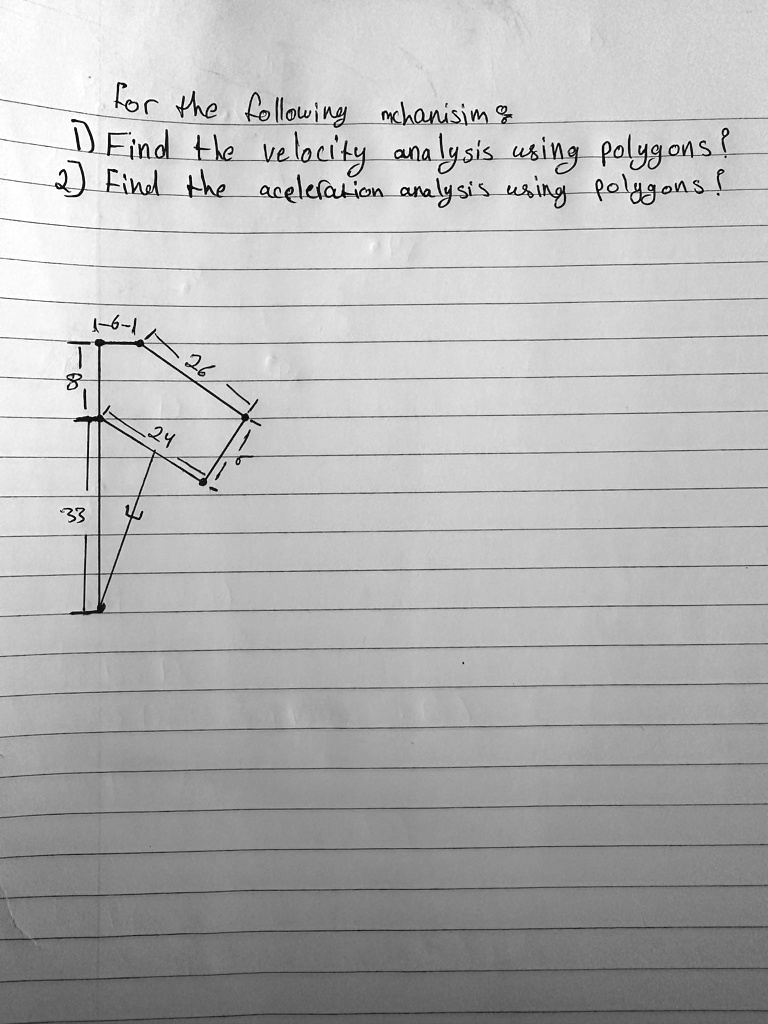 for the following mchanisim :
1) Find the velocity analysis using polygons ?
2) Find the aceleration analysis using polygons ?
6
26
8
24
33